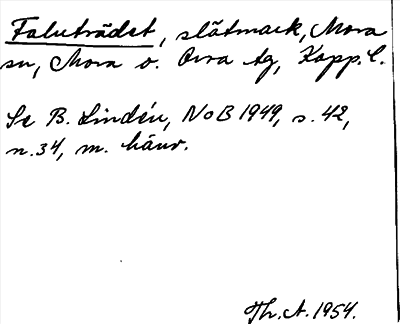 Faluträdet, slåtmark, Mora
sn, Mora o. Orsa tg, Kopp. l.
Se B. Lindén, NoB 1949, s. 42,
n. 34, m. hänv.
Th. A. 1954.